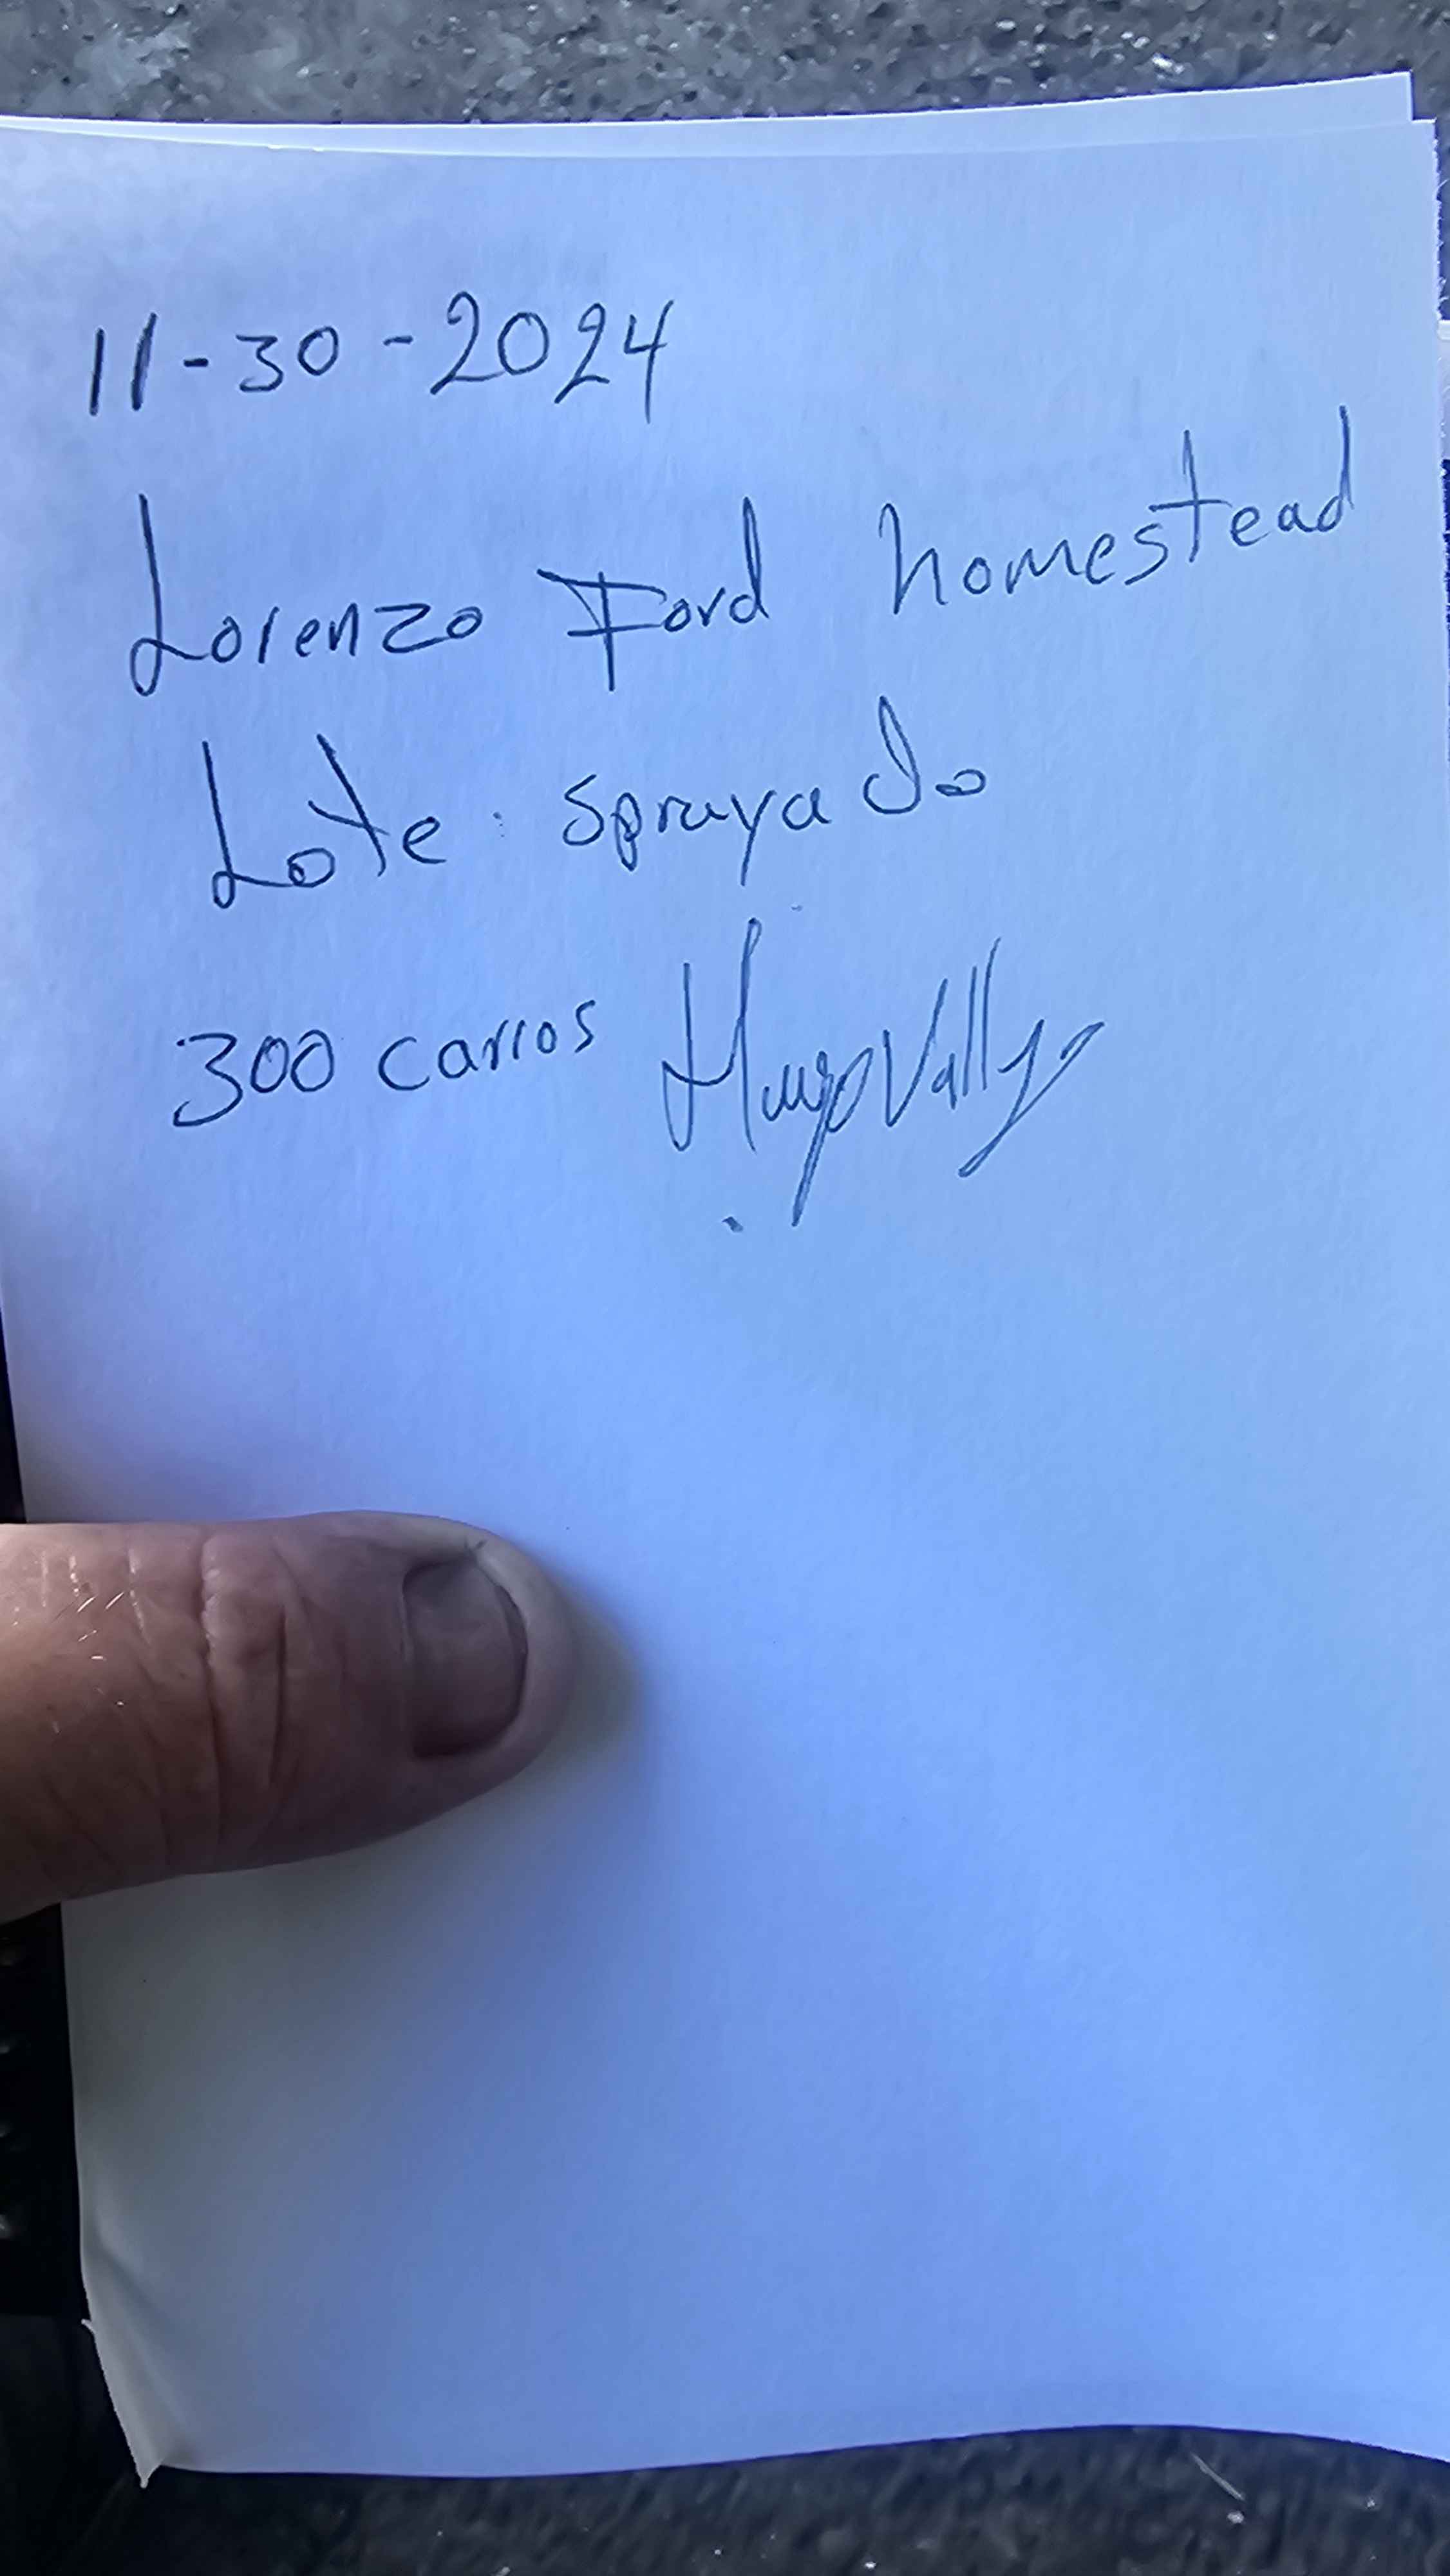 11-30-2024
Lorenzo Ford homestead
Lote: sprayado
300 carros Hugo